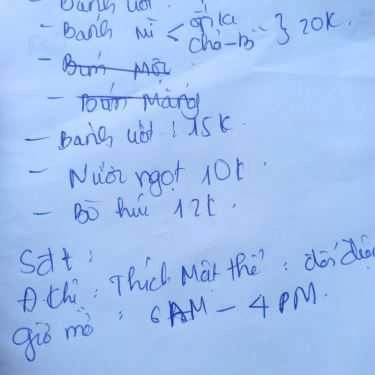 - Bánh ướt.
- Bánh mì < ốp la
chả-Bì } 20K.
- Bún Mọc
- Bún Măng
- Bánh ướt : 15K.
- Nước ngọt 10K.
- Bò húc 12K.
Sđt :
Đ chỉ : Thích Mật thể : đối diện
giờ mở : 6AM - 4PM.